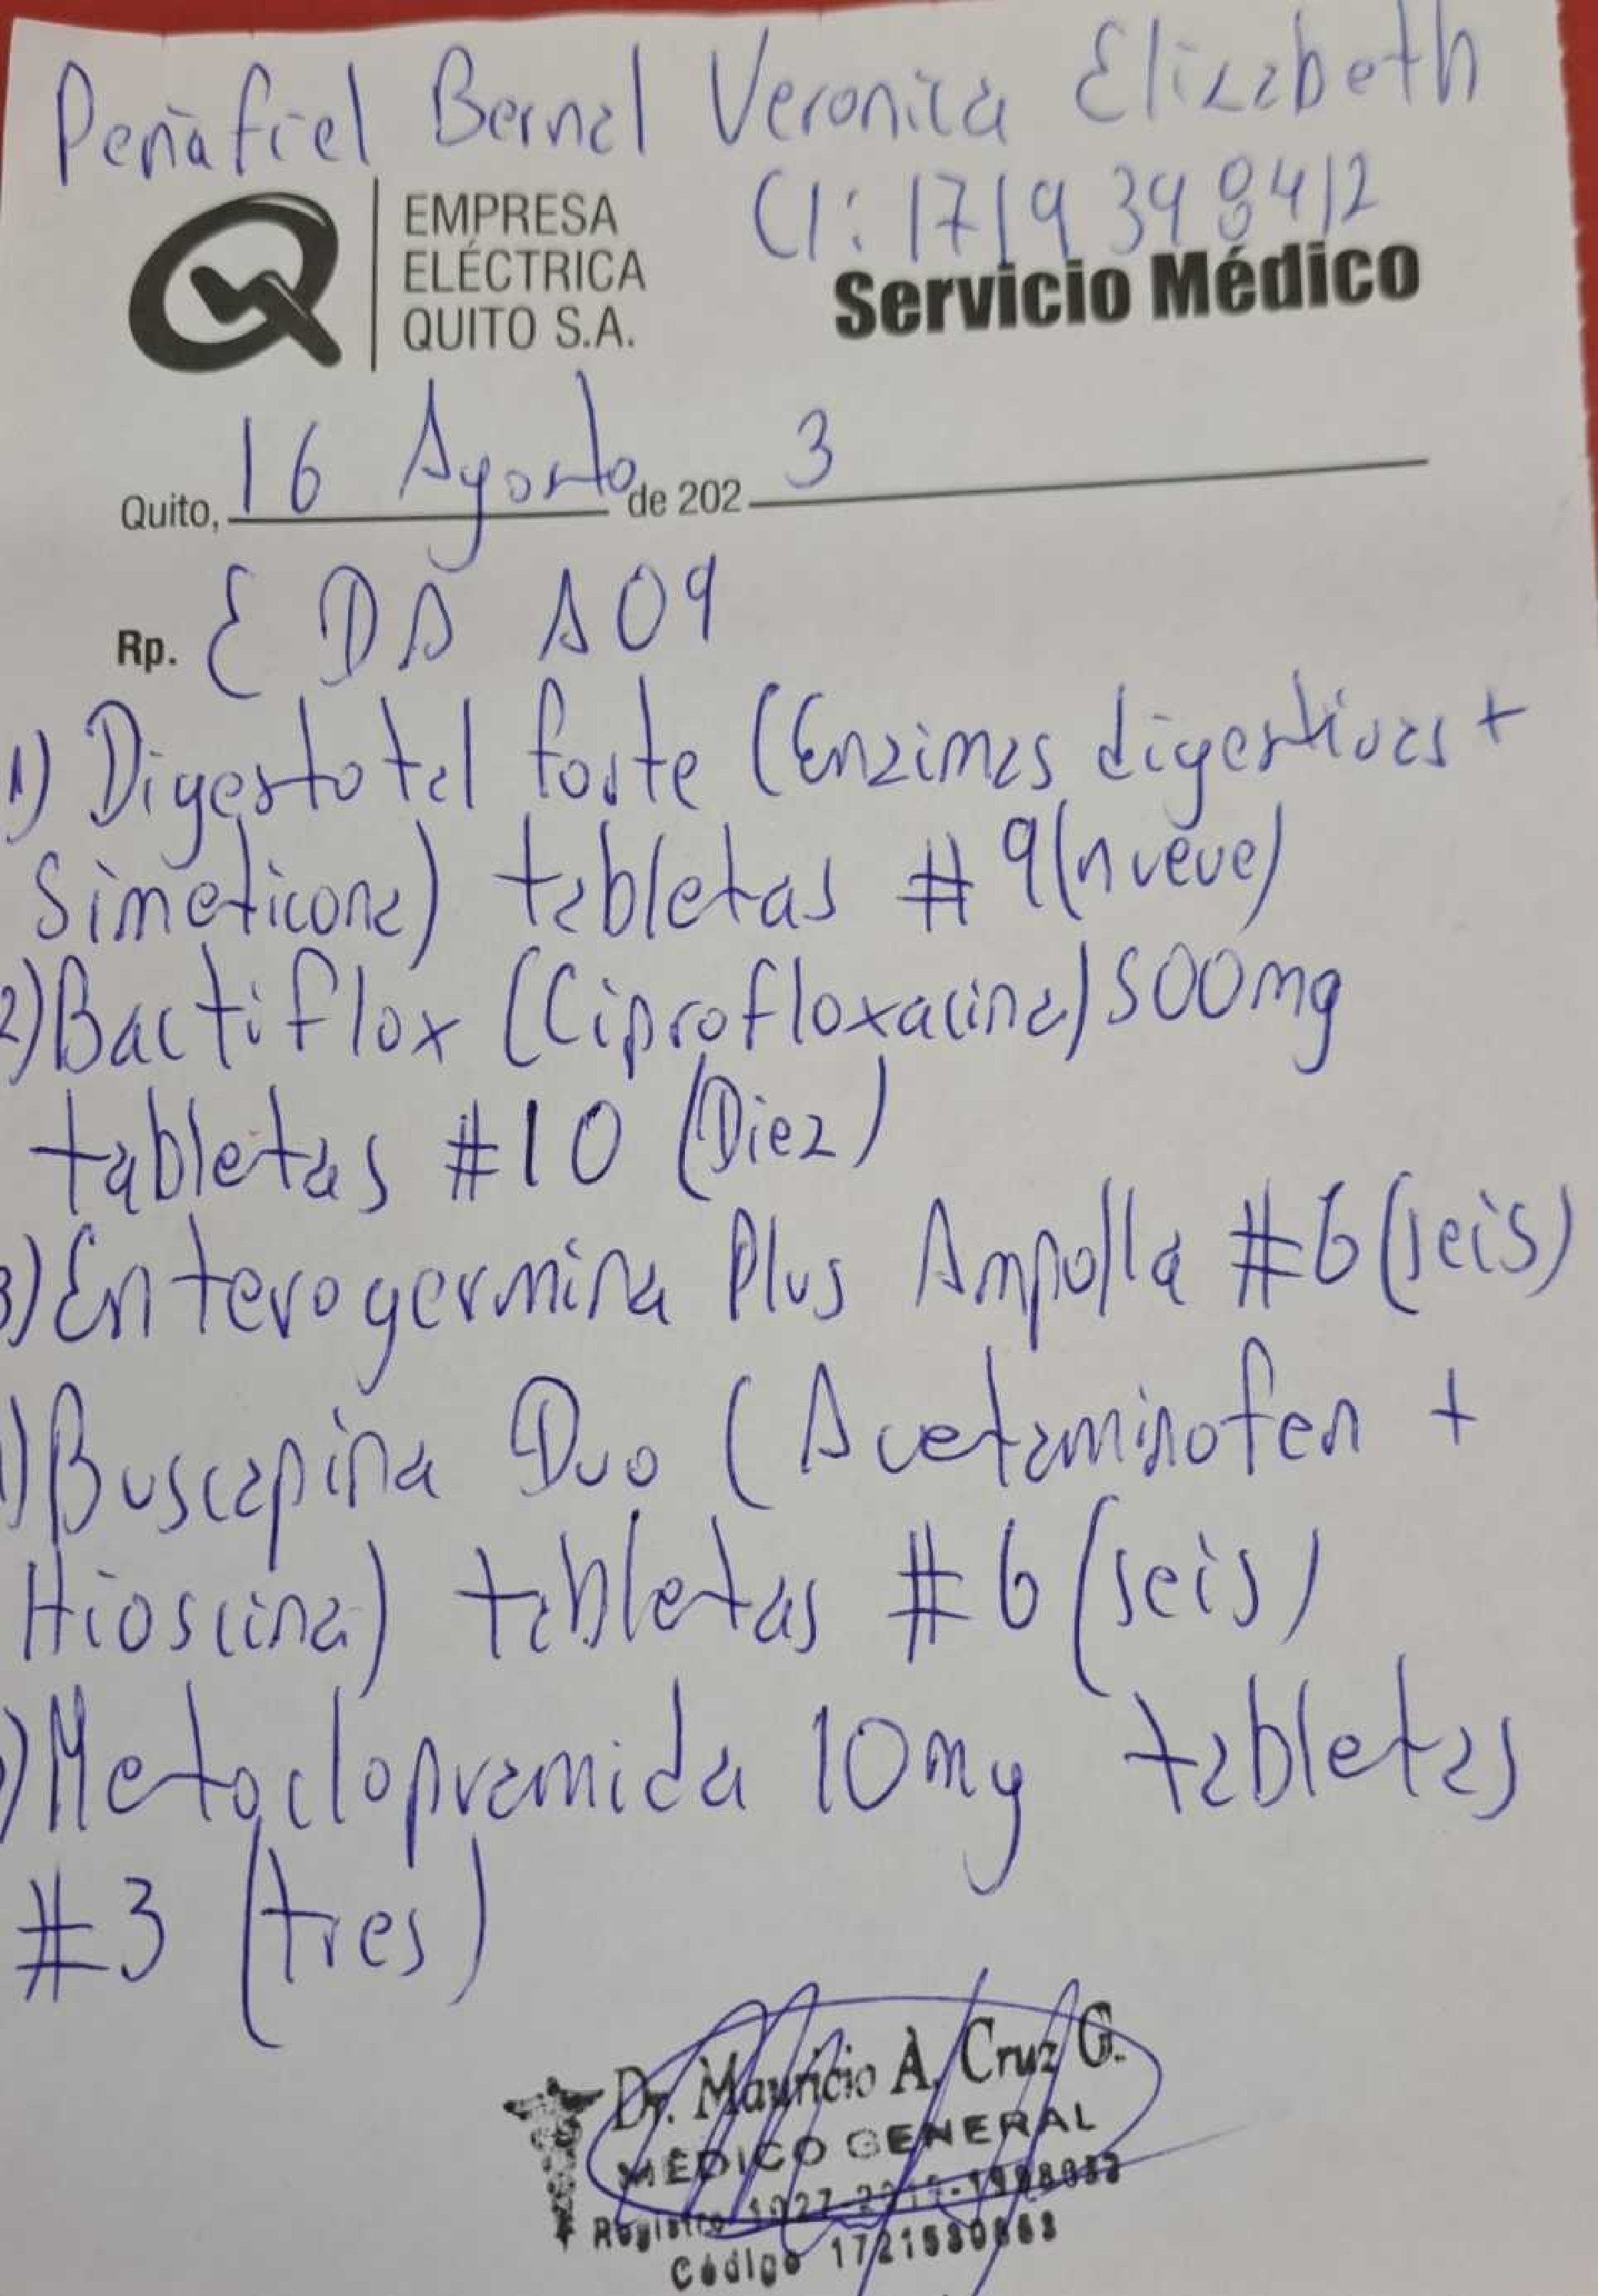 Peñafiel Bernal Veronica Elizabeth
CI: 1719398412
EMPRESA
ELÉCTRICA
QUITO S.A.
Servicio Médico
Quito, 16 Agosto de 202 3
Rp. EDA A09
1) Digestotal forte (Enzimas digestivas +
Simeticona) tabletas #9 (nueve)
2) Bactiflox (Ciprofloxacina) 500mg
tabletas #10 (Diez)
3) Enterogermina Plus Ampolla #6 (seis)
) Buscapina Duo (Acetaminofen +
Hioscina) tabletas #6 (seis)
) Metoclopramida 10mg tabletas
#3 (tres)
Dr. Mauricio A. Cruz G.
MÉDICO GENERAL
Registro
Código